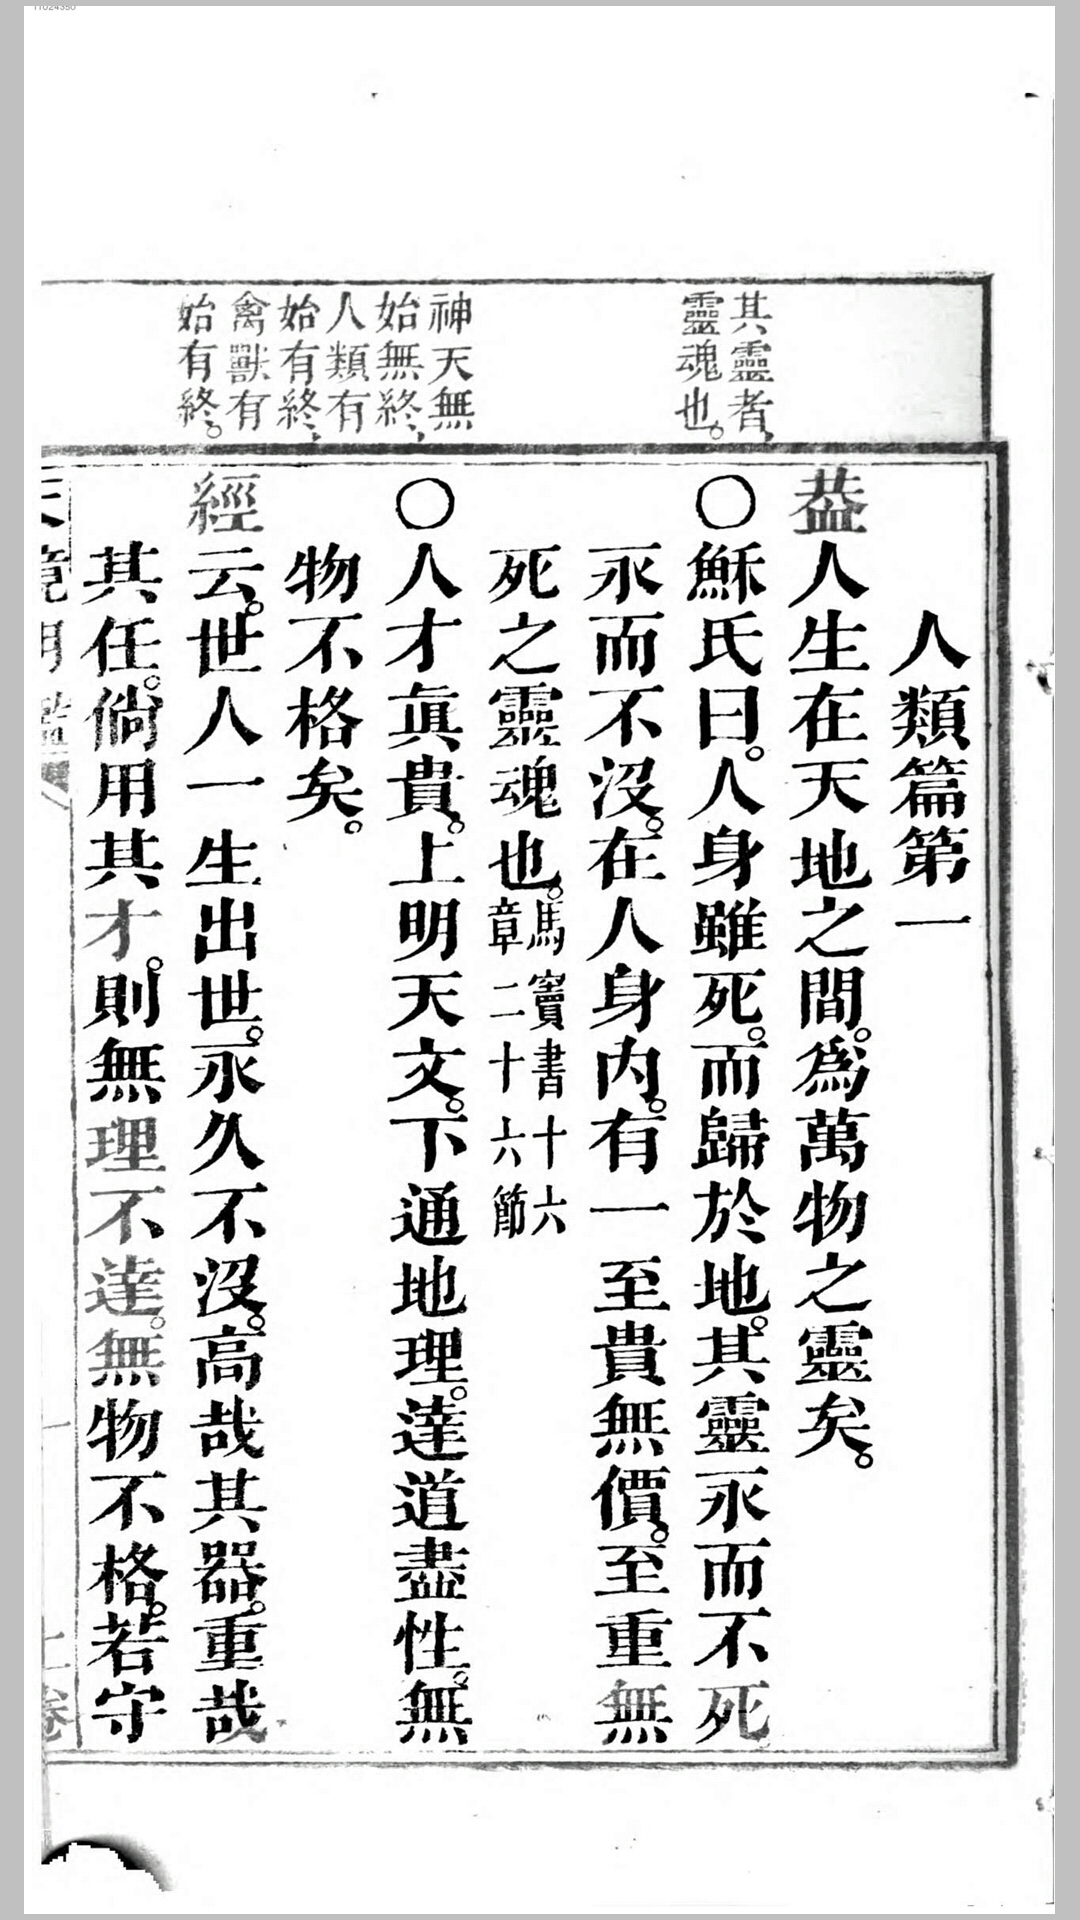 其靈者、
靈魂也。
神天無
始無終、
人類有
始有終、
禽獸有
始有終。
人類篇第一
葢人生在天地之間。為萬物之靈矣。
○穌氏曰。人身雖死。而歸於地。其靈永而不死
永而不沒。在人身内。有一至貴無價。至重無
死之靈魂也。馬竇書十六
章二十六節
○人才眞貴。上明天文。下通地理。達道盡性。無
物不格矣。
經云。世人一生出世。永久不沒。高哉其器。重哉
其任。倘用其才。則無理不達。無物不格。若守
上卷